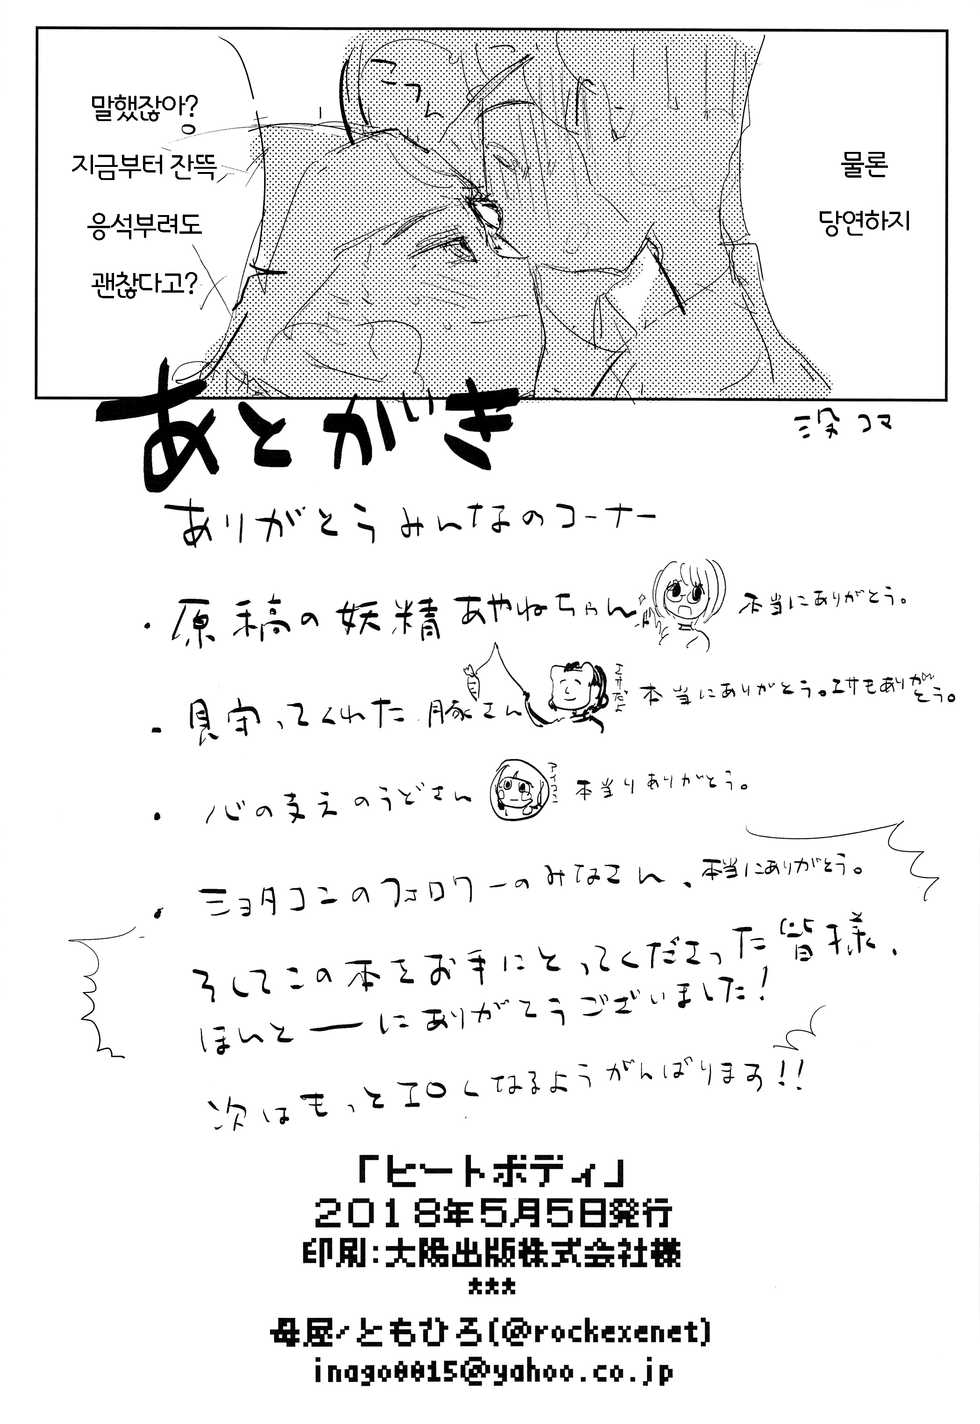 물론
당연하지
こつん
말했잖아?
지금부터 잔뜩
응석부려도
괜찮다고?
没コマ
あとがき
ありがとうみんなのコーナー
・原稿の妖精あやねちゃん 本当にありがとう。
・見守ってくれた豚さん エサだよ 本当にありがとう。エサもありがとう。
・心の支えのうどさん アイアイン 本当りありがとう。
・ショタコンのフォロワーのみなさん、本当にありがとう。
そしてこの本をお手にとってくださった皆様、
ほんとーにありがとうございました!
次はもっとエロくなるようがんばります!!
「ヒートボディ」
2018年5月5日発行
印刷:大陽出版株式会社様
***
母屋/ともひろ(@rockexenet)
inago0015@yahoo.co.jp